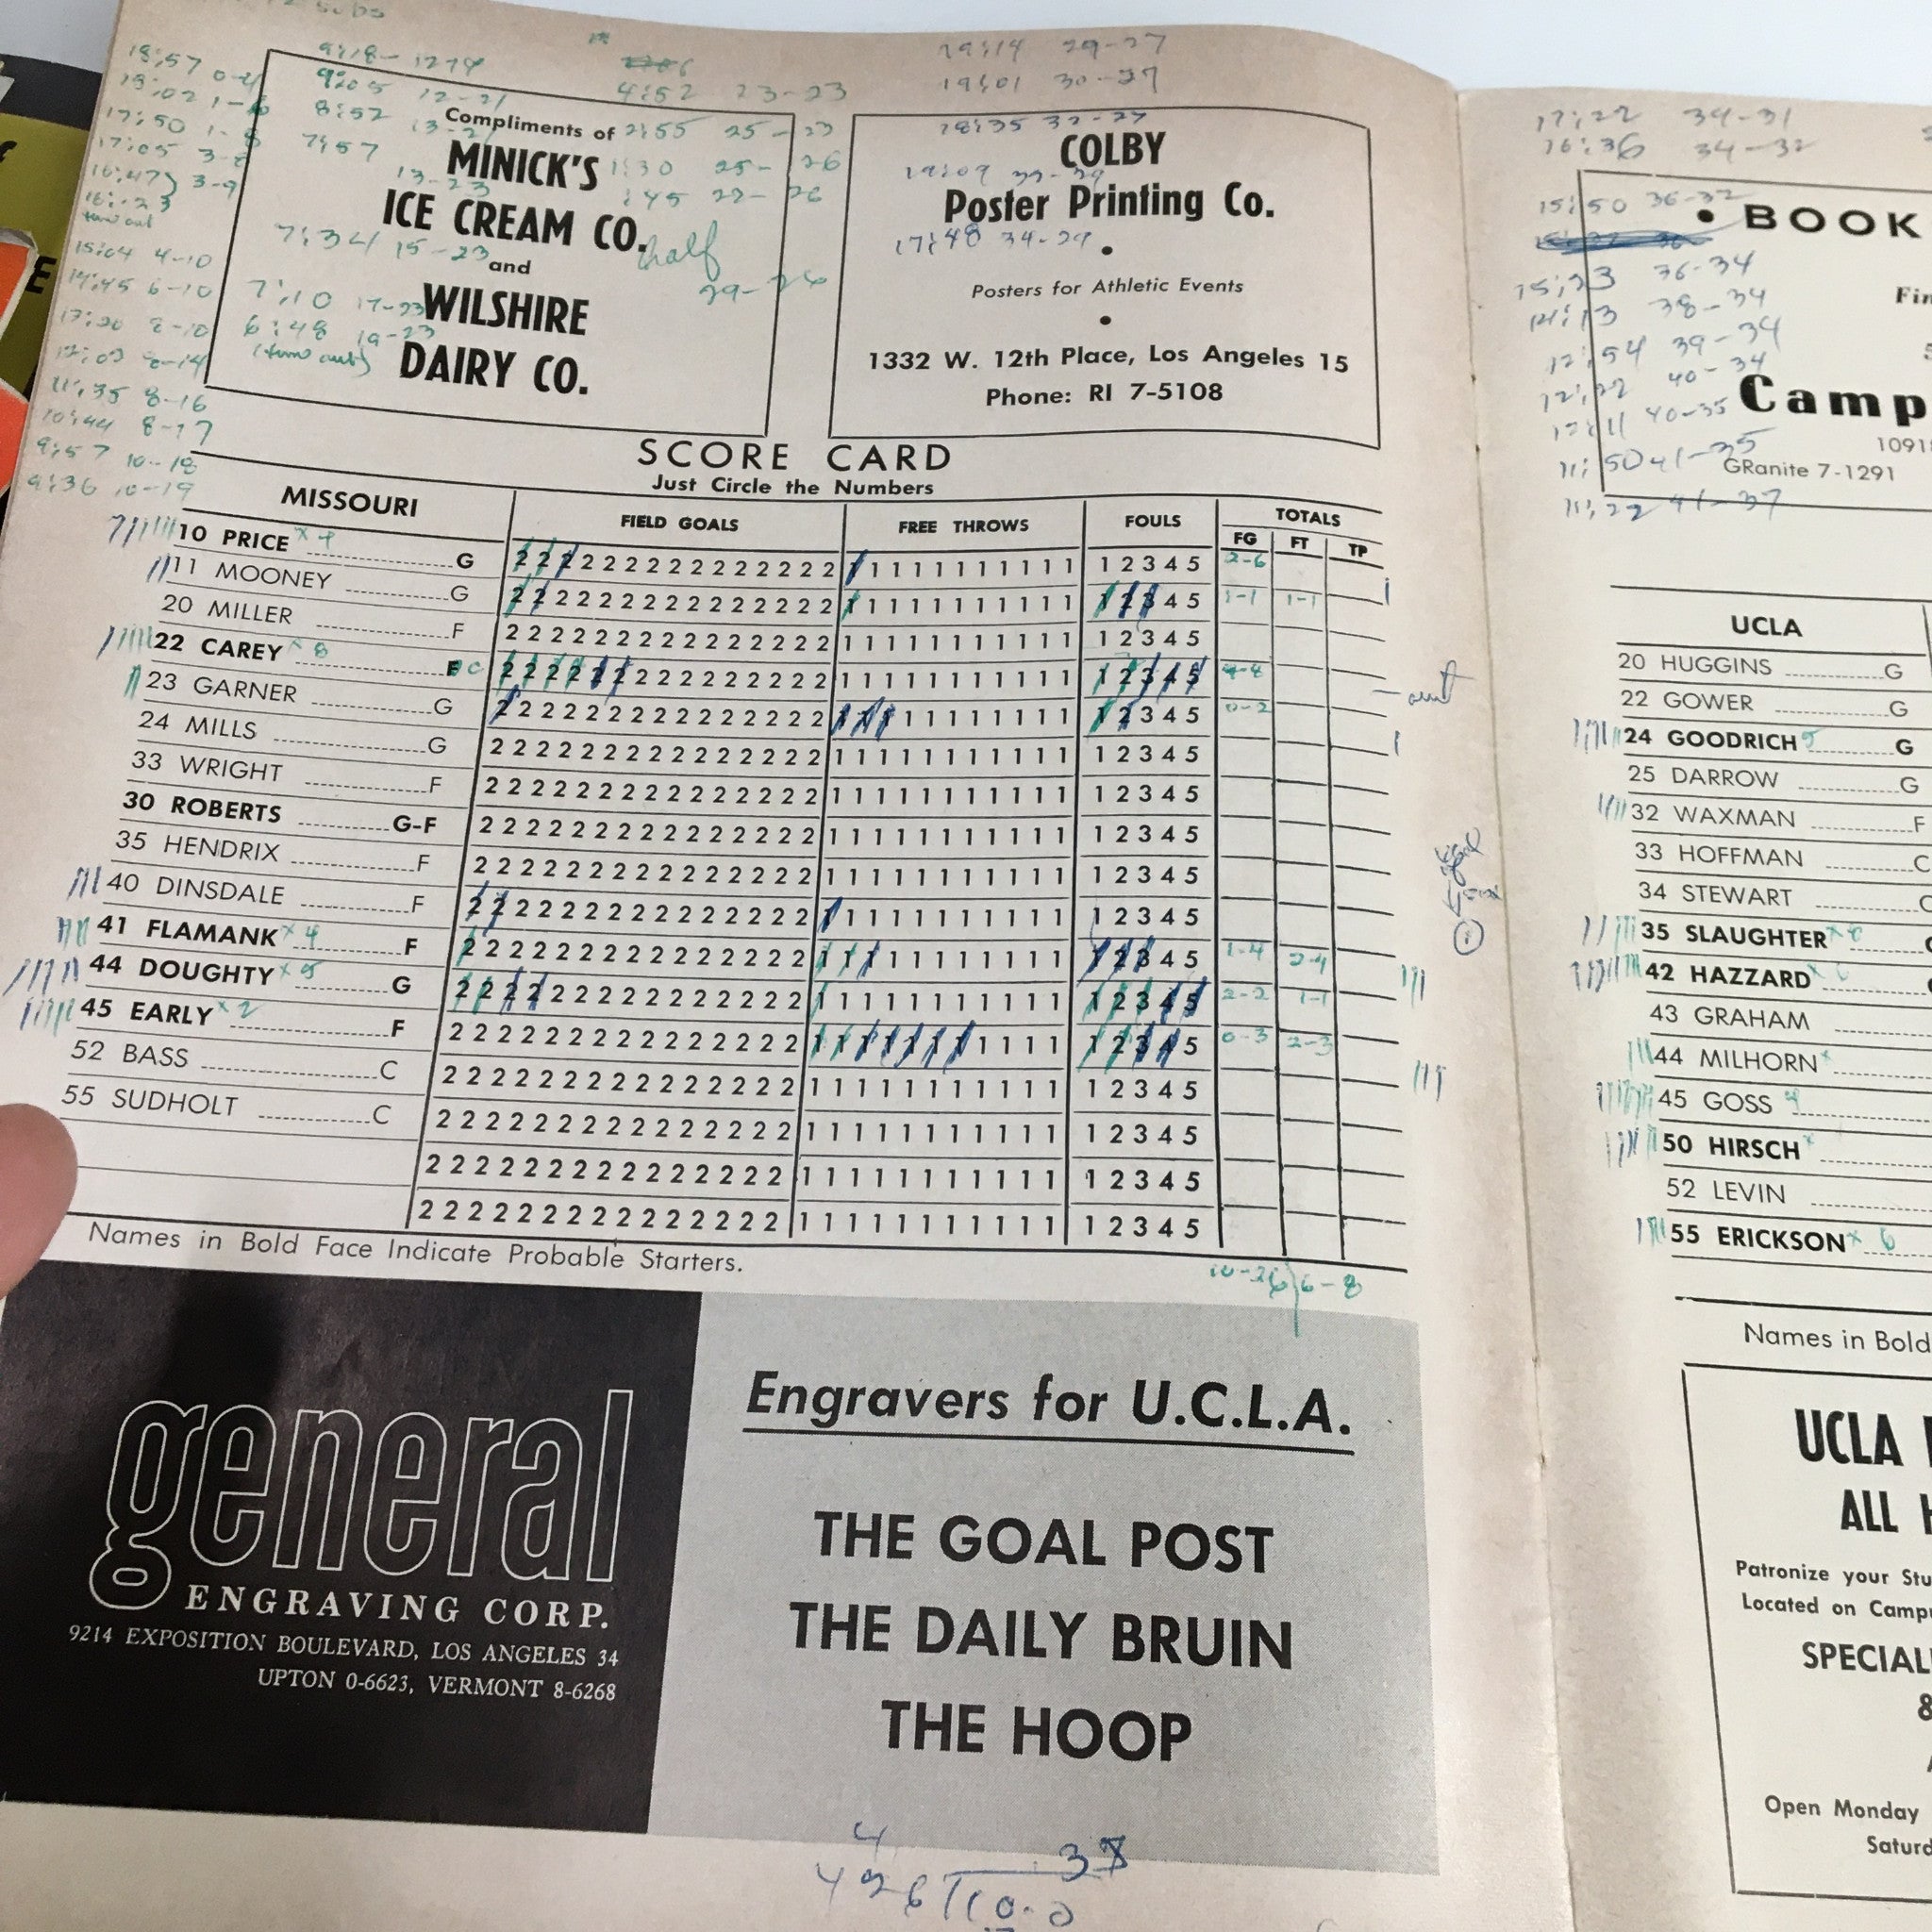 18:57 0-4
18:02 1-6
17:50 1-8
17:05 3-8
16:47 3-9
16:23
time out
15:04 4-10
14:45 6-10
13:20 8-10
12:03 8-14
11:35 8-16
10:44 8-17
9:57 10-18
9:36 10-19
9:18- 12-19
9:05 12-21
8:52 13-21
7:57
13-23
7:34 15-23
7:10 17-23
6:48 19-23
(time out)
4:52 23-23
2:55 25-23
1:30 25-26
:45 27-26
half
29-26
Compliments of
MINICK'S
ICE CREAM CO.
and
WILSHIRE
DAIRY CO.
19:14 29-27
19:01 30-27
18:35 32-27
17:48 34-29
COLBY
Poster Printing Co.
•
Posters for Athletic Events
•
1332 W. 12th Place, Los Angeles 15
Phone: RI 7-5108
SCORE CARD
Just Circle the Numbers
MISSOURI FIELD GOALS FREE THROWS FOULS TOTALS
FG FT TP
10 PRICE x 4 G 2 2 2 2 2 2 2 2 2 2 2 2 2 2 2 1 1 1 1 1 1 1 1 1 1 1 1 2 3 4 5 2-6
11 MOONEY G 2 2 2 2 2 2 2 2 2 2 2 2 2 2 2 1 1 1 1 1 1 1 1 1 1 1 1 2 3 4 5 1-1 1-1
20 MILLER F 2 2 2 2 2 2 2 2 2 2 2 2 2 2 2 1 1 1 1 1 1 1 1 1 1 1 1 2 3 4 5
22 CAREY x 8 F C 2 2 2 2 2 2 2 2 2 2 2 2 2 2 2 1 1 1 1 1 1 1 1 1 1 1 1 2 3 4 5 4-8
23 GARNER G 2 2 2 2 2 2 2 2 2 2 2 2 2 2 2 1 1 1 1 1 1 1 1 1 1 1 1 2 3 4 5 0-2
24 MILLS G 2 2 2 2 2 2 2 2 2 2 2 2 2 2 2 1 1 1 1 1 1 1 1 1 1 1 1 2 3 4 5
33 WRIGHT F 2 2 2 2 2 2 2 2 2 2 2 2 2 2 2 1 1 1 1 1 1 1 1 1 1 1 1 2 3 4 5
30 ROBERTS G-F 2 2 2 2 2 2 2 2 2 2 2 2 2 2 2 1 1 1 1 1 1 1 1 1 1 1 1 2 3 4 5
35 HENDRIX F 2 2 2 2 2 2 2 2 2 2 2 2 2 2 2 1 1 1 1 1 1 1 1 1 1 1 1 2 3 4 5
40 DINSDALE F 2 2 2 2 2 2 2 2 2 2 2 2 2 2 2 1 1 1 1 1 1 1 1 1 1 1 1 2 3 4 5
41 FLAMANK x 4 F 2 2 2 2 2 2 2 2 2 2 2 2 2 2 2 1 1 1 1 1 1 1 1 1 1 1 1 2 3 4 5 1-4 2-4
44 DOUGHTY x 5 G 2 2 2 2 2 2 2 2 2 2 2 2 2 2 2 1 1 1 1 1 1 1 1 1 1 1 1 2 3 4 5 2-2 1-1
45 EARLY x 2 F 2 2 2 2 2 2 2 2 2 2 2 2 2 2 2 1 1 1 1 1 1 1 1 1 1 1 1 2 3 4 5 0-3 2-3
52 BASS C 2 2 2 2 2 2 2 2 2 2 2 2 2 2 2 1 1 1 1 1 1 1 1 1 1 1 1 2 3 4 5
55 SUDHOLT C 2 2 2 2 2 2 2 2 2 2 2 2 2 2 2 1 1 1 1 1 1 1 1 1 1 1 1 2 3 4 5
2 2 2 2 2 2 2 2 2 2 2 2 2 2 2 1 1 1 1 1 1 1 1 1 1 1 1 2 3 4 5
2 2 2 2 2 2 2 2 2 2 2 2 2 2 2 1 1 1 1 1 1 1 1 1 1 1 1 2 3 4 5
10-26 6-8
Names in Bold Face Indicate Probable Starters.
general
ENGRAVING CORP.
9214 EXPOSITION BOULEVARD, LOS ANGELES 34
UPTON 0-6623, VERMONT 8-6268
Engravers for U.C.L.A.
THE GOAL POST
THE DAILY BRUIN
THE HOOP
17:22 34-31
16:36 34-32
15:50 36-32
15:23 36-34
14:13 38-34
12:54 39-34
12:22 40-34
12:11 40-35
11:50 41-35
11:22 41-37
• BOOK
Camp
GRanite 7-1291
UCLA
20 HUGGINS G
22 GOWER G
24 GOODRICH 5 G
25 DARROW G
32 WAXMAN F
33 HOFFMAN C
34 STEWART
35 SLAUGHTER
42 HAZZARD
43 GRAHAM
44 MILHORN
45 GOSS 4
50 HIRSCH
52 LEVIN
55 ERICKSON x 6
Names in Bold
UCLA
ALL
Patronize your Stu
Located on Camp
SPECIAL
Open Monday
Saturd